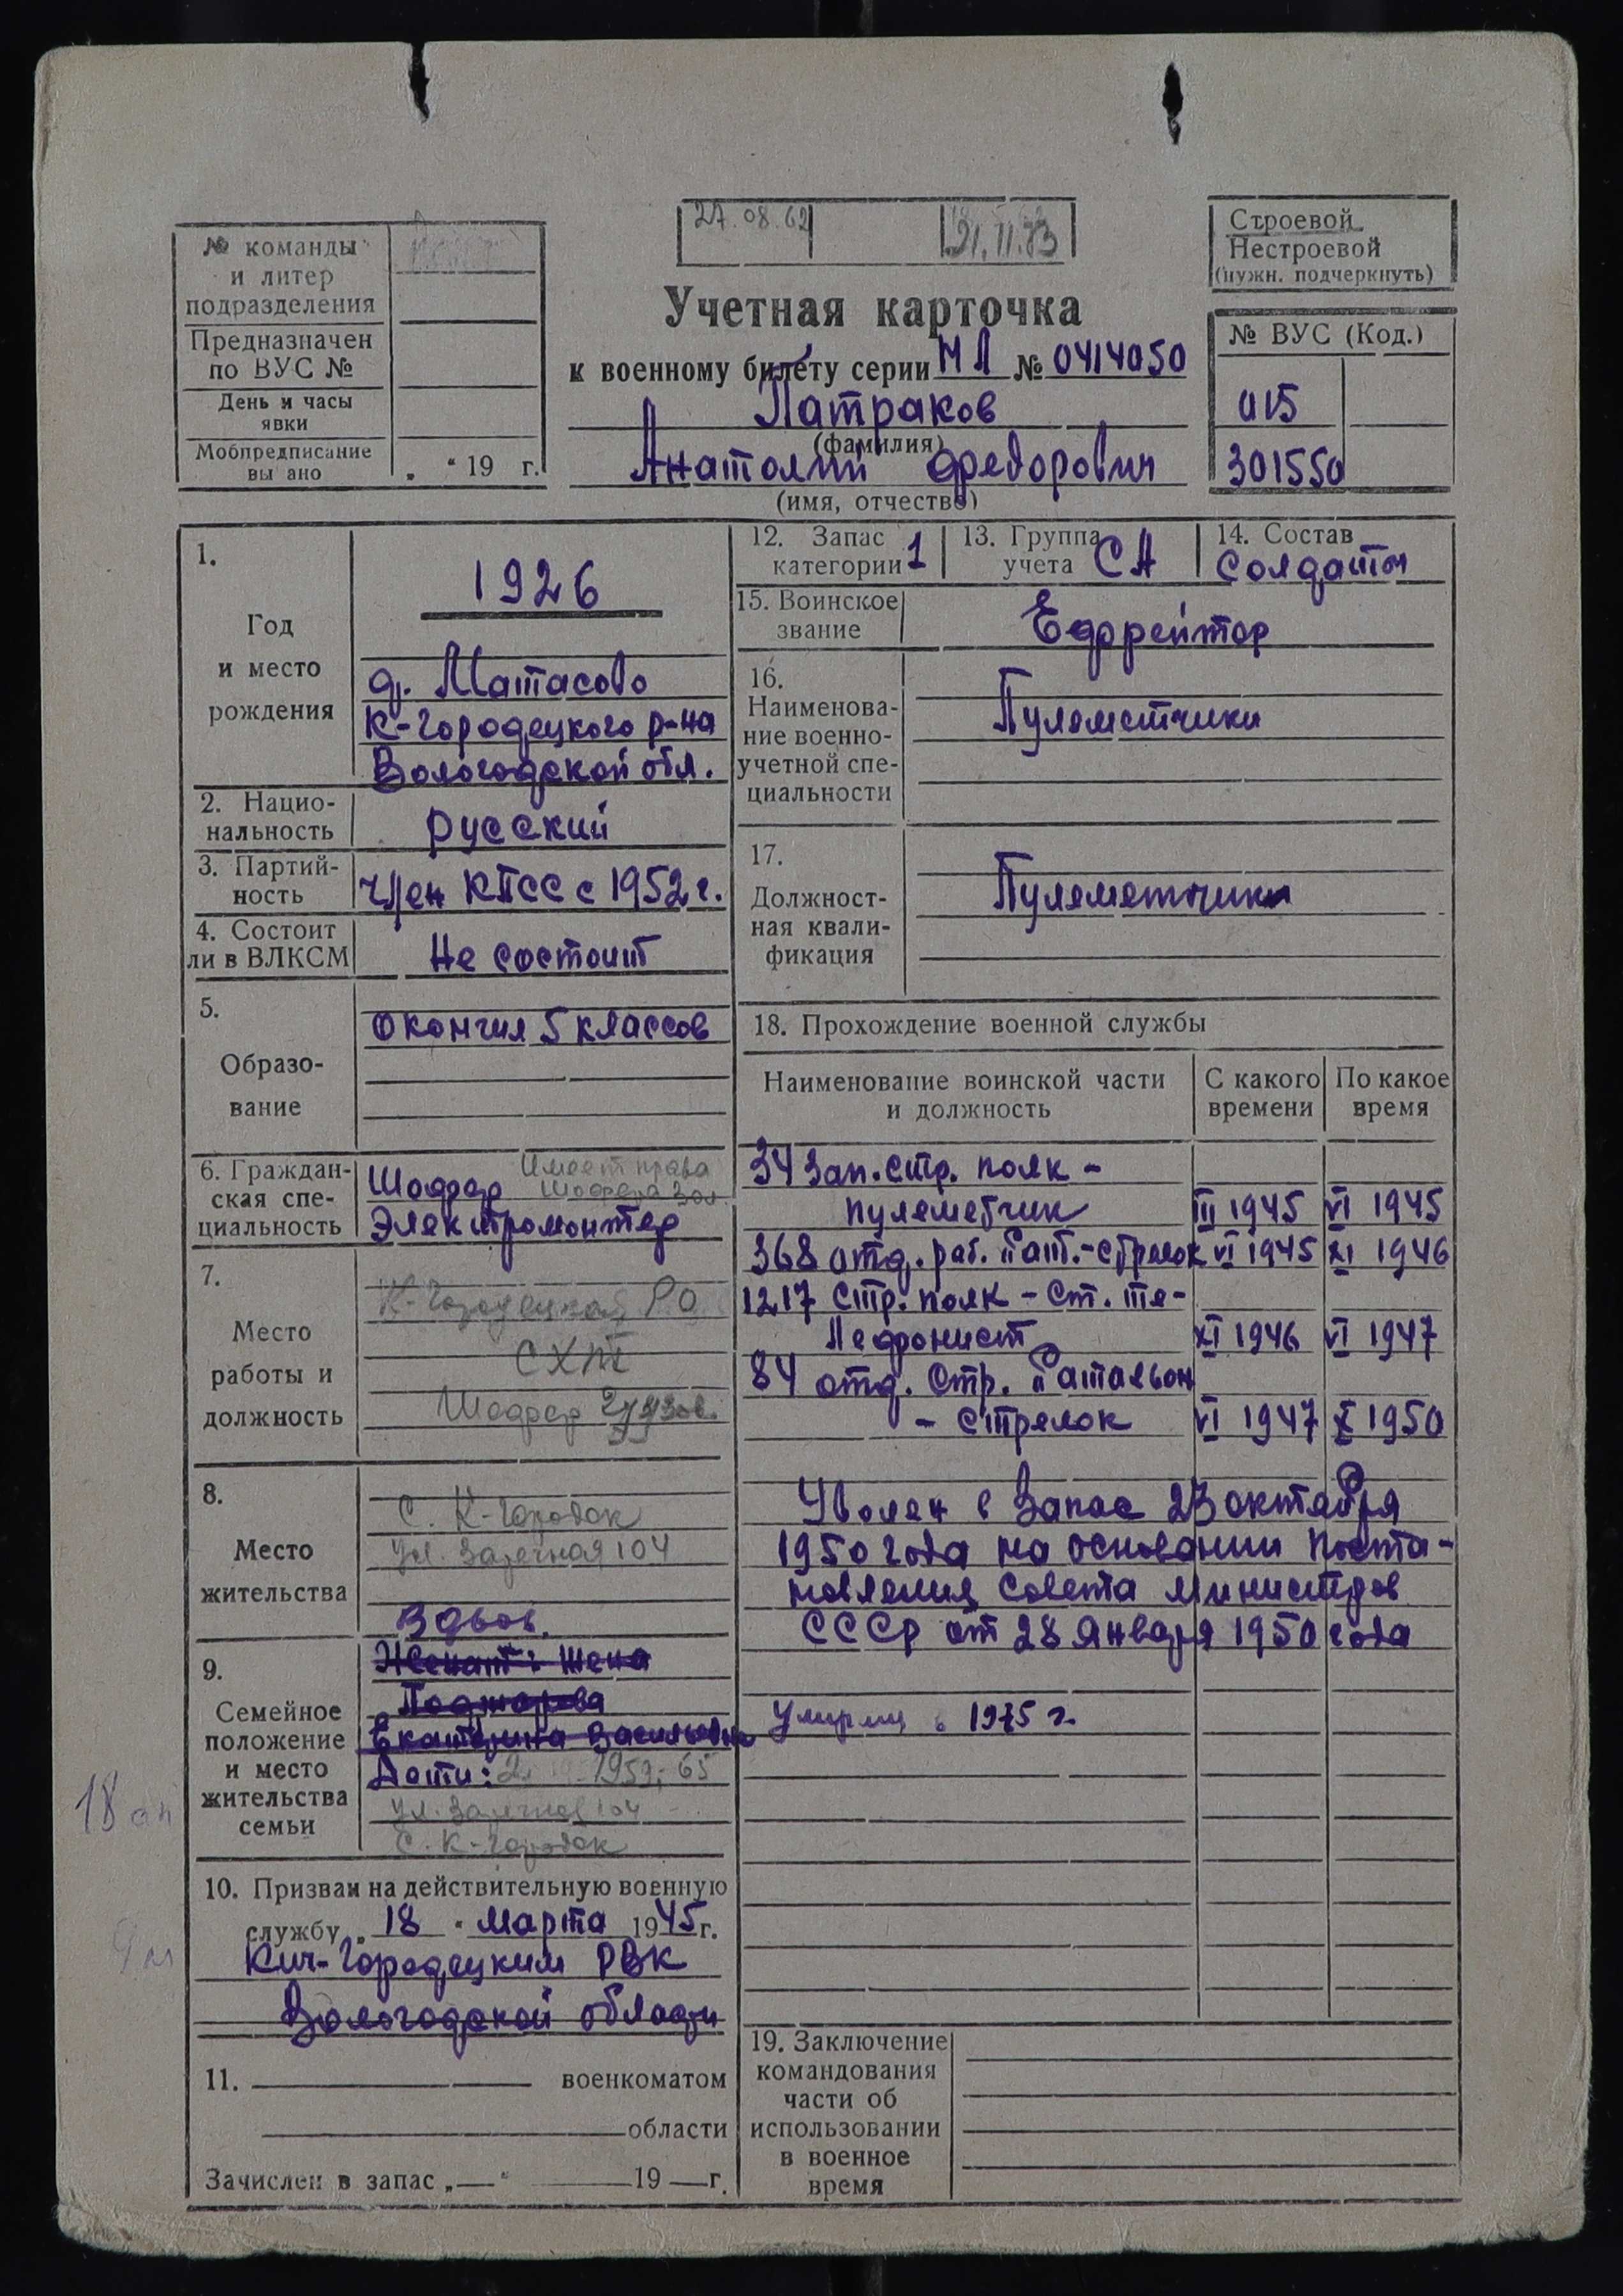 27.08.62
21.11.73
Строевой
Нестроевой
(нужн. подчеркнуть)
№ команды
и литер
подразделения
Предназначен
по ВУС №
День и часы
явки
Мобпредписание
вы ано „ “ 19 г.
Учетная карточка
к военному билету серии НЛ № 0414050
Патраков
(фамилия)
Анатолий Федорович
(имя, отчество)
№ ВУС (Код.)
015
301550
1.
Год
и место
рождения
1926
д. Матасово
К-Городецкого р-на
Вологодской обл.
2. Нацио-
нальность
русский
3. Партий-
ность
член КПСС с 1952 г.
4. Состоит
ли в ВЛКСМ
Не состоит
5.
Образо-
вание
Окончил 5 классов
6. Граждан-
ская спе-
циальность
Имеет права
Шофер шофера 3 кл.
Электромонтер
7.
Место
работы и
должность
К-Городецкое РО
СХТ
Шофер грузов.
8.
Место
жительства
с. К-Городок
ул. Заречная 104
Вдов.
9.
Семейное
положение
и место
жительства
семьи
Женат: жена
Екатерина Васильевна
Дети: 2 1959, 65
ул. Заречная 104
с. К-Городок
18
10. Призван на действительную военную
службу „ 18 “ марта 1945 г.
Кич-Городецким РВК
Вологодской области
11. военкоматом
области
Зачислен в запас „—“ 19 — г.
12. Запас
категории 1
13. Группа
учета СА
14. Состав
Солдаты
15. Воинское
звание
Ефрейтор
16.
Наименова-
ние военно-
учетной спе-
циальности
Пулеметчики
17.
Должност-
ная квали-
фикация
Пулеметчик
18. Прохождение военной службы
Наименование воинской части
и должность
С какого
времени
По какое
время
34 зап. стр. полк -
пулеметчик III 1945 VI 1945
368 отд. раб. бат. - стрелок VI 1945 XI 1946
1217 стр. полк - ст. те-
лефонист XI 1946 VI 1947
84 отд. стр. батальон
- стрелок VI 1947 X 1950
Уволен в запас 23 октября
1950 года на основании поста-
новления Совета министров
СССР от 28 января 1950 года
Умерла в 1975 г.
19. Заключение
командования
части об
использовании
в военное
время